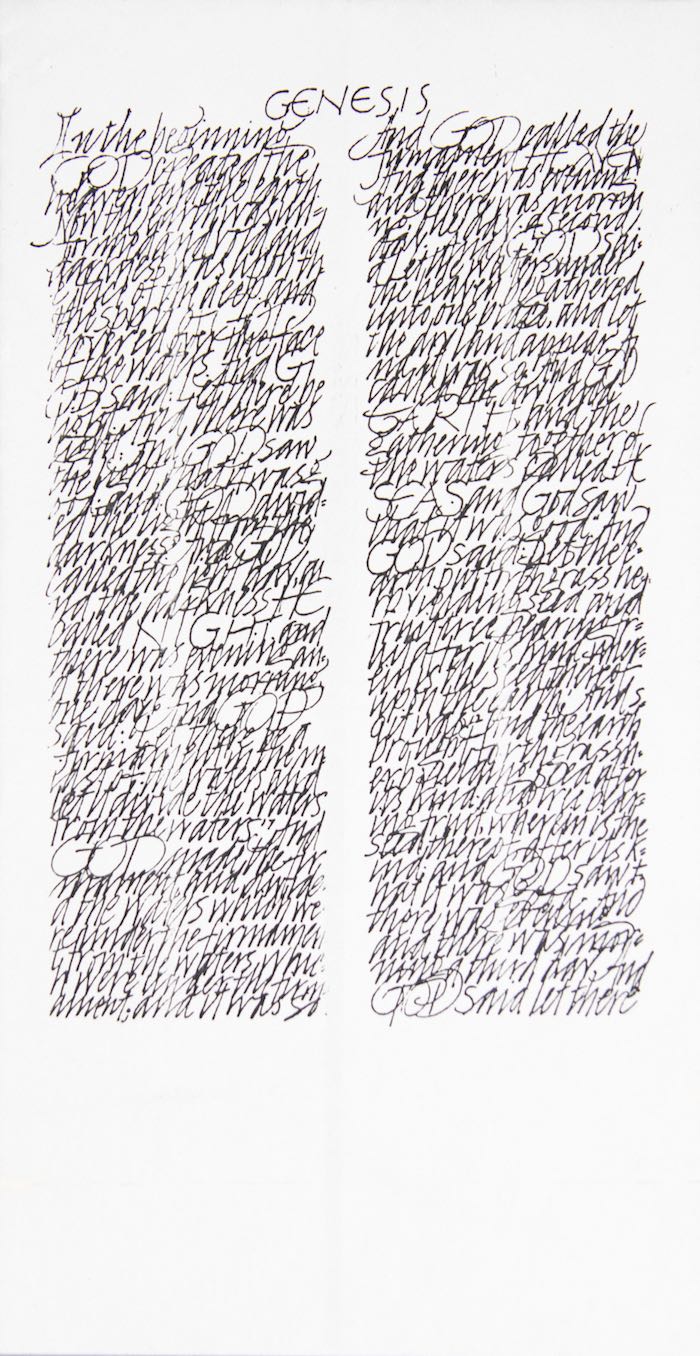 GENESIS
In the beginning
GOD created the
heaven and the earth
Now the earth was un-
formed and void and
darkness was upon the
face of the deep and
the spirit of
hovered over the face
of the waters. And G
OD said: Let there be
light. And there was
light. And GOD saw
the light that it was g
od. And: GOD divid-
ed the light from the
darkness: And GOD
called the light day, an
nd the darkness HE
called NIGHT. and
there was evening an
d there was morning
one day. And GOD
said: Let there be a
firmament in the m
idst of the waters and
let it divide the waters
from the waters: And
GOD made the fir
mament, and divide
d the waters which we
re under the firmamen
t from the waters whic
h were under the firm
ament: and it was so.
And GOD called the
firmament
And there was evening
and there was mornin
g, the day, a second
day. And GOD sai-
d Let the waters under
the heaven be gathered
unto one place, and let
the dry land appear. A
nd it was so. And GOD
called the dry land
EARTH, and the
gathering together of
the waters called HE
SEAS and God saw
that it was good. And
GOD said: Let the e-
arth put forth grass he
rb yielding seed and
fruit tree bearing fr-
uit after its kind, wher-
ein is the seed thereof
upon the earth. And s
o it was. And the earth
brought forth grass
herb yielding seed after
its kind: and tree bear-
ing fruit, wherein is the
seed thereof after its k-
ind: and GOD saw t
hat it was good. And
there was evening
and there was mor-
ning a third day. And
GOD said let there